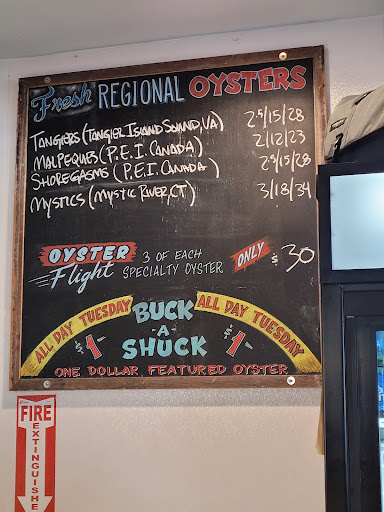 Fresh REGIONAL OYSTERS
TANGIERS (TANGIER ISLAND SOUND, VA) 2.5/15/28
MALPEQUES (P.E.I. CANADA) 2/12/23
SHOREGASMS (P.E.I. CANADA) 2.5/15/28
MYSTICS (MYSTIC RIVER, CT) 3/18/34
OYSTER Flight 3 OF EACH SPECIALTY OYSTER ONLY $30
ALL DAY TUESDAY BUCK -A- SHUCK ALL DAY TUESDAY
$1- $1-
ONE DOLLAR FEATURED OYSTER
FIRE
EXTINGUISHE